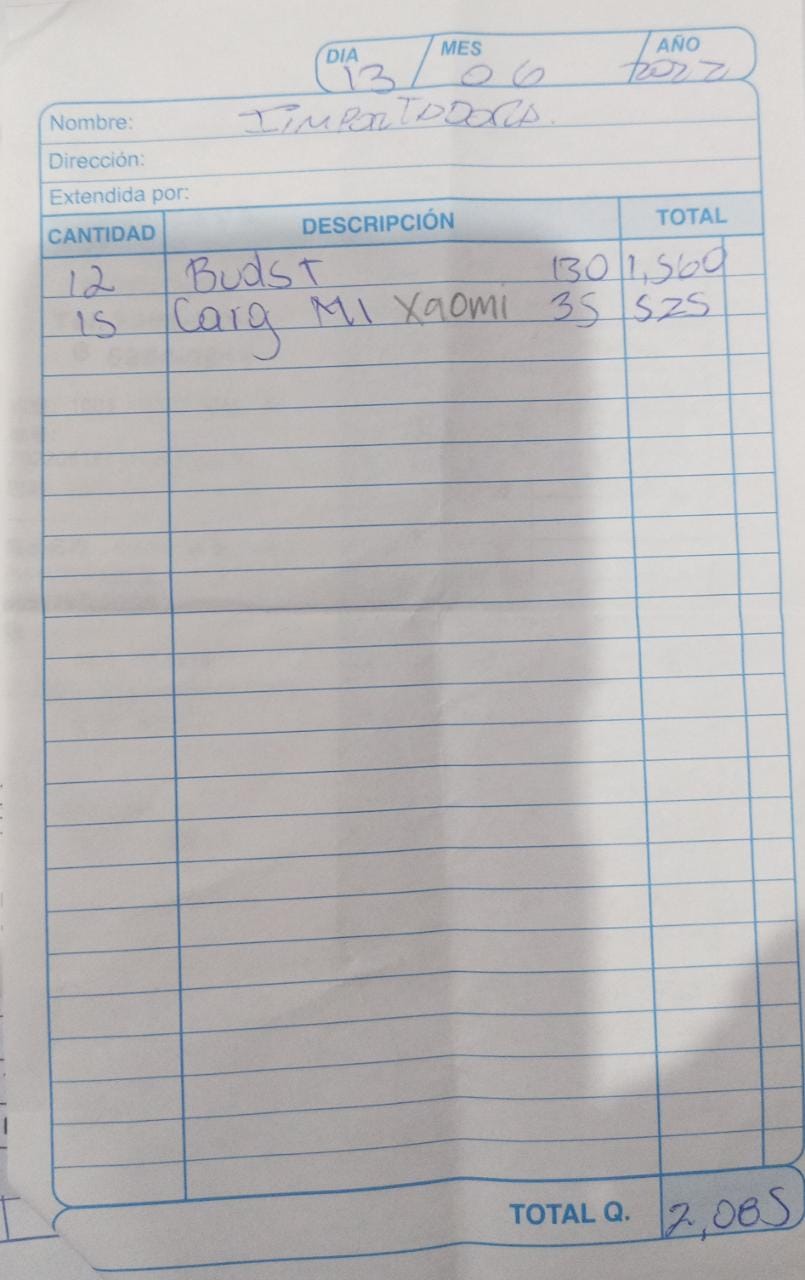 DIA MES AÑO
13 06 2022
Nombre: IIMPORTADORA.
Dirección:
Extendida por:
CANTIDAD DESCRIPCIÓN TOTAL
12 Budst 130 1,560
15 Carg MI Xaomi 35 525
TOTAL Q. 2,085